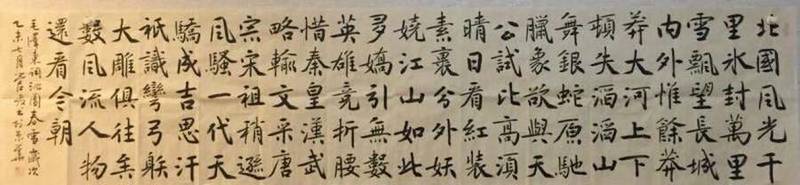 北國風光千
里冰封萬里
雪飄望長城
内外惟餘莽
莽大河上下
頓失滔滔山
舞銀蛇原馳
臘象欲與天
公試比高須
晴日看紅裝
素裹分外妖
嬈江山如此
多嬌引無數
英雄競折腰
惜秦皇漢武
略輸文采唐
宗宋祖稍遜
風騷一代天
驕成吉思汗
祇識彎弓躲
大雕俱往矣
數風流人物
還看今朝
毛澤東詞沁園春雪歲次
乙未七月